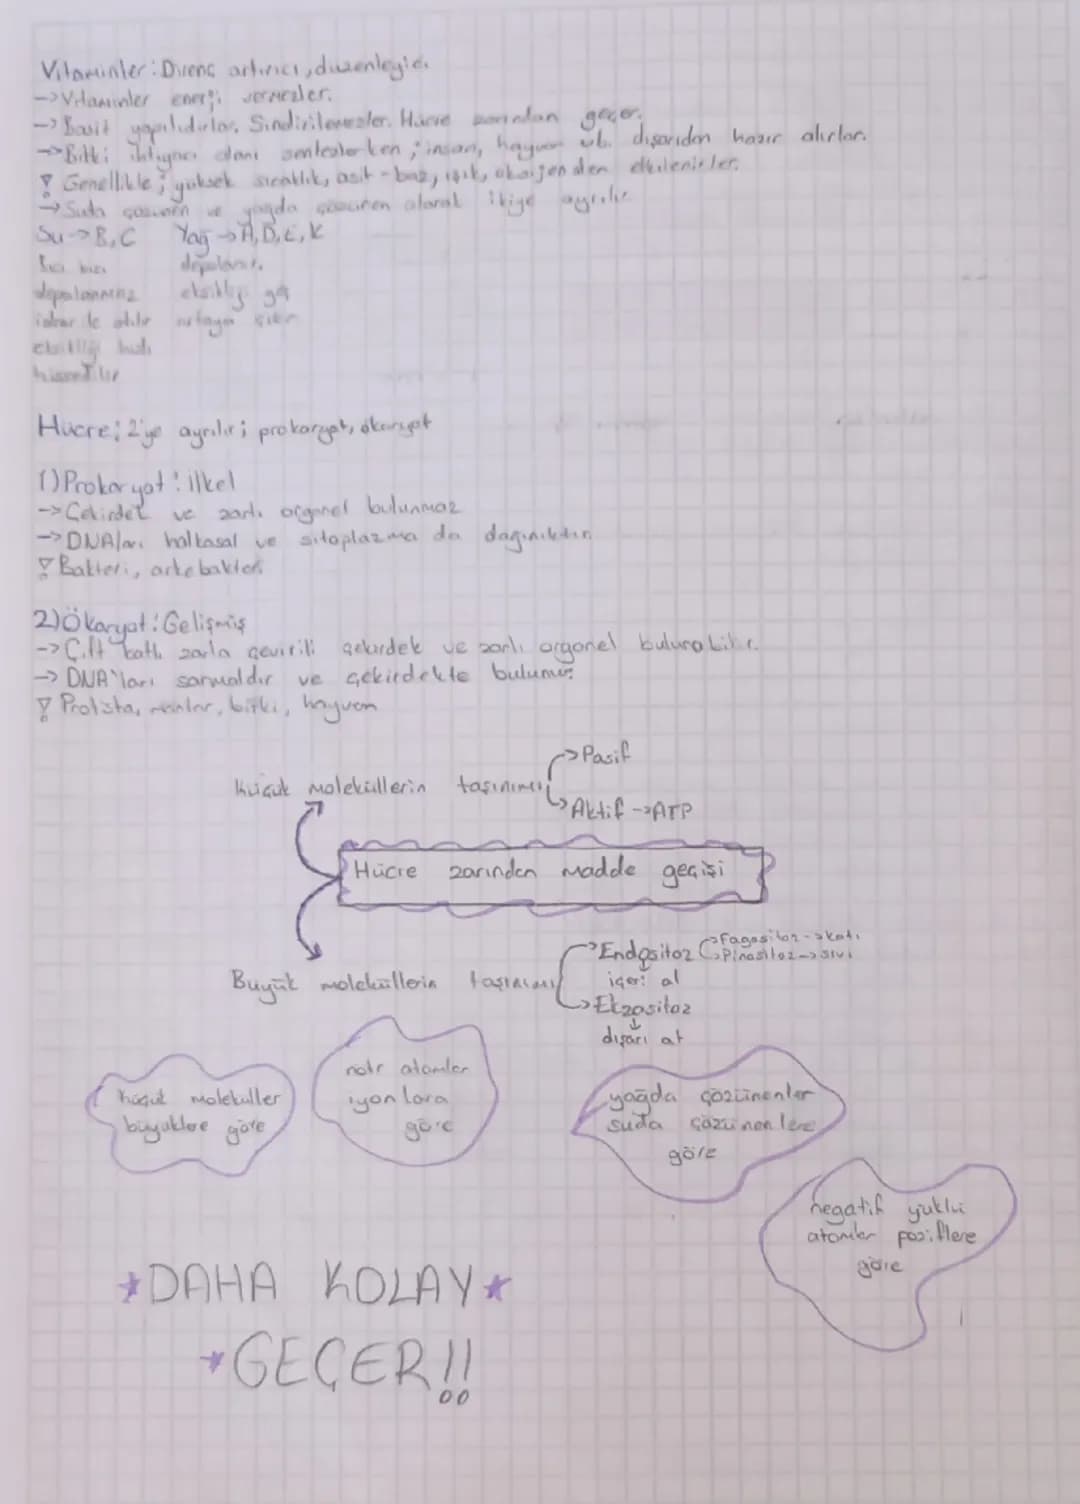 Vitaminler: Direnç artırıcı, düzenleyici
-> Vitaminler enerji vermezler.
-> Basit yapılıdırlar. Sindirilemezler. Hücre zarından geçer.
-> Bitki ihtiyacı olanı sentezlerken; insan, hayvan vb. dışarıdan hazır alırlar.
! Genellikle; yüksek sıcaklık, asit-baz, ışık, oksijenden etkilenirler.
-> Suda çözünen ve yağda çözünen olarak ikiye ayrılır
Su -> B, C Yağ -> A, D, E, K
depolanır.
depolanmaz eksikliği geç
idrar ile atılır ortaya çıkar
eksikliği hızlı
hissedilir
Hücre; 2'ye ayrılır; prokaryot, ökaryot
1) Prokaryot: ilkel
-> Çekirdek ve zarlı organel bulunmaz
-> DNA'ları halkasal ve sitoplazma da dağınıktır
! Bakteri, arkebakteri
2) Ökaryot: Gelişmiş
-> Çift katlı zarla çevirili çekirdek ve zarlı organel bulunabilir.
-> DNA'ları sarmaldır ve çekirdekte bulunur.
! Protista, mantar, bitki, hayvan
-> Pasif
küçük moleküllerin taşınımı
-> Aktif -> ATP
Hücre zarından madde geçişi
-> Endositoz -> Fagositoz -> katı
-> Pinositoz -> sıvı
Büyük moleküllerin taşınımı
içeri al
-> Ekzositoz
dışarı at
küçük moleküller
büyüklere göre
notr atomlar
iyonlara
göre
yağda çözünenler
suda çözünenlere
göre
negatif yüklü
atomlar pozitiflere
göre
*DAHA KOLAY*
*GEÇER!!